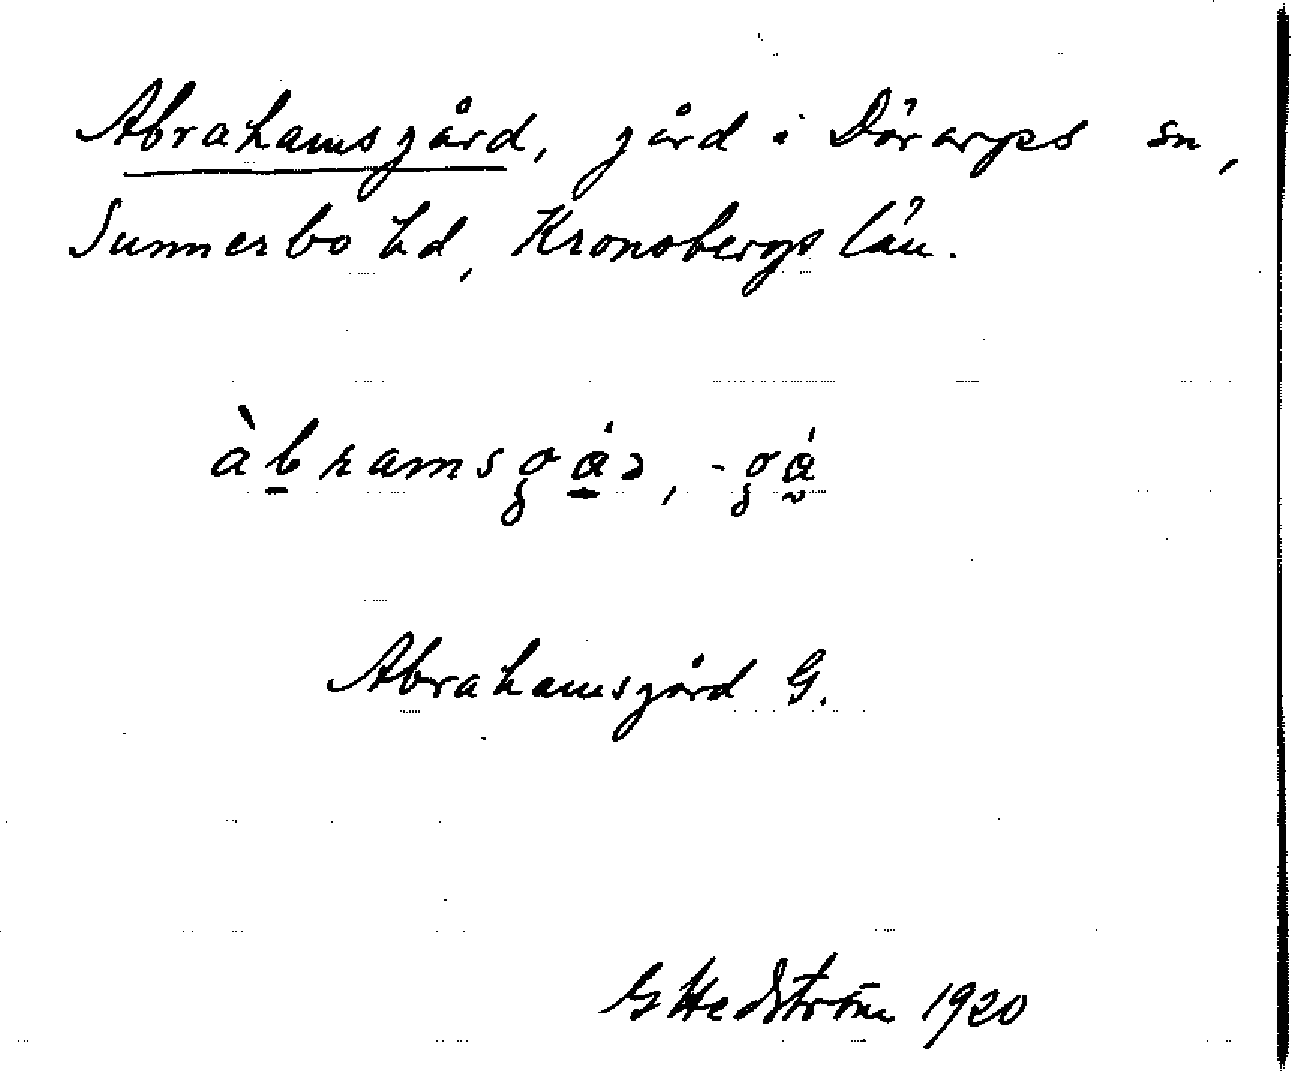 Abrahamsgård, gård i Dörarps sn,
Sunnerbo hd, Kronobergs län.
àbramsgáɿ, -gá
Abrahamsgård G.
G Hedström 1920